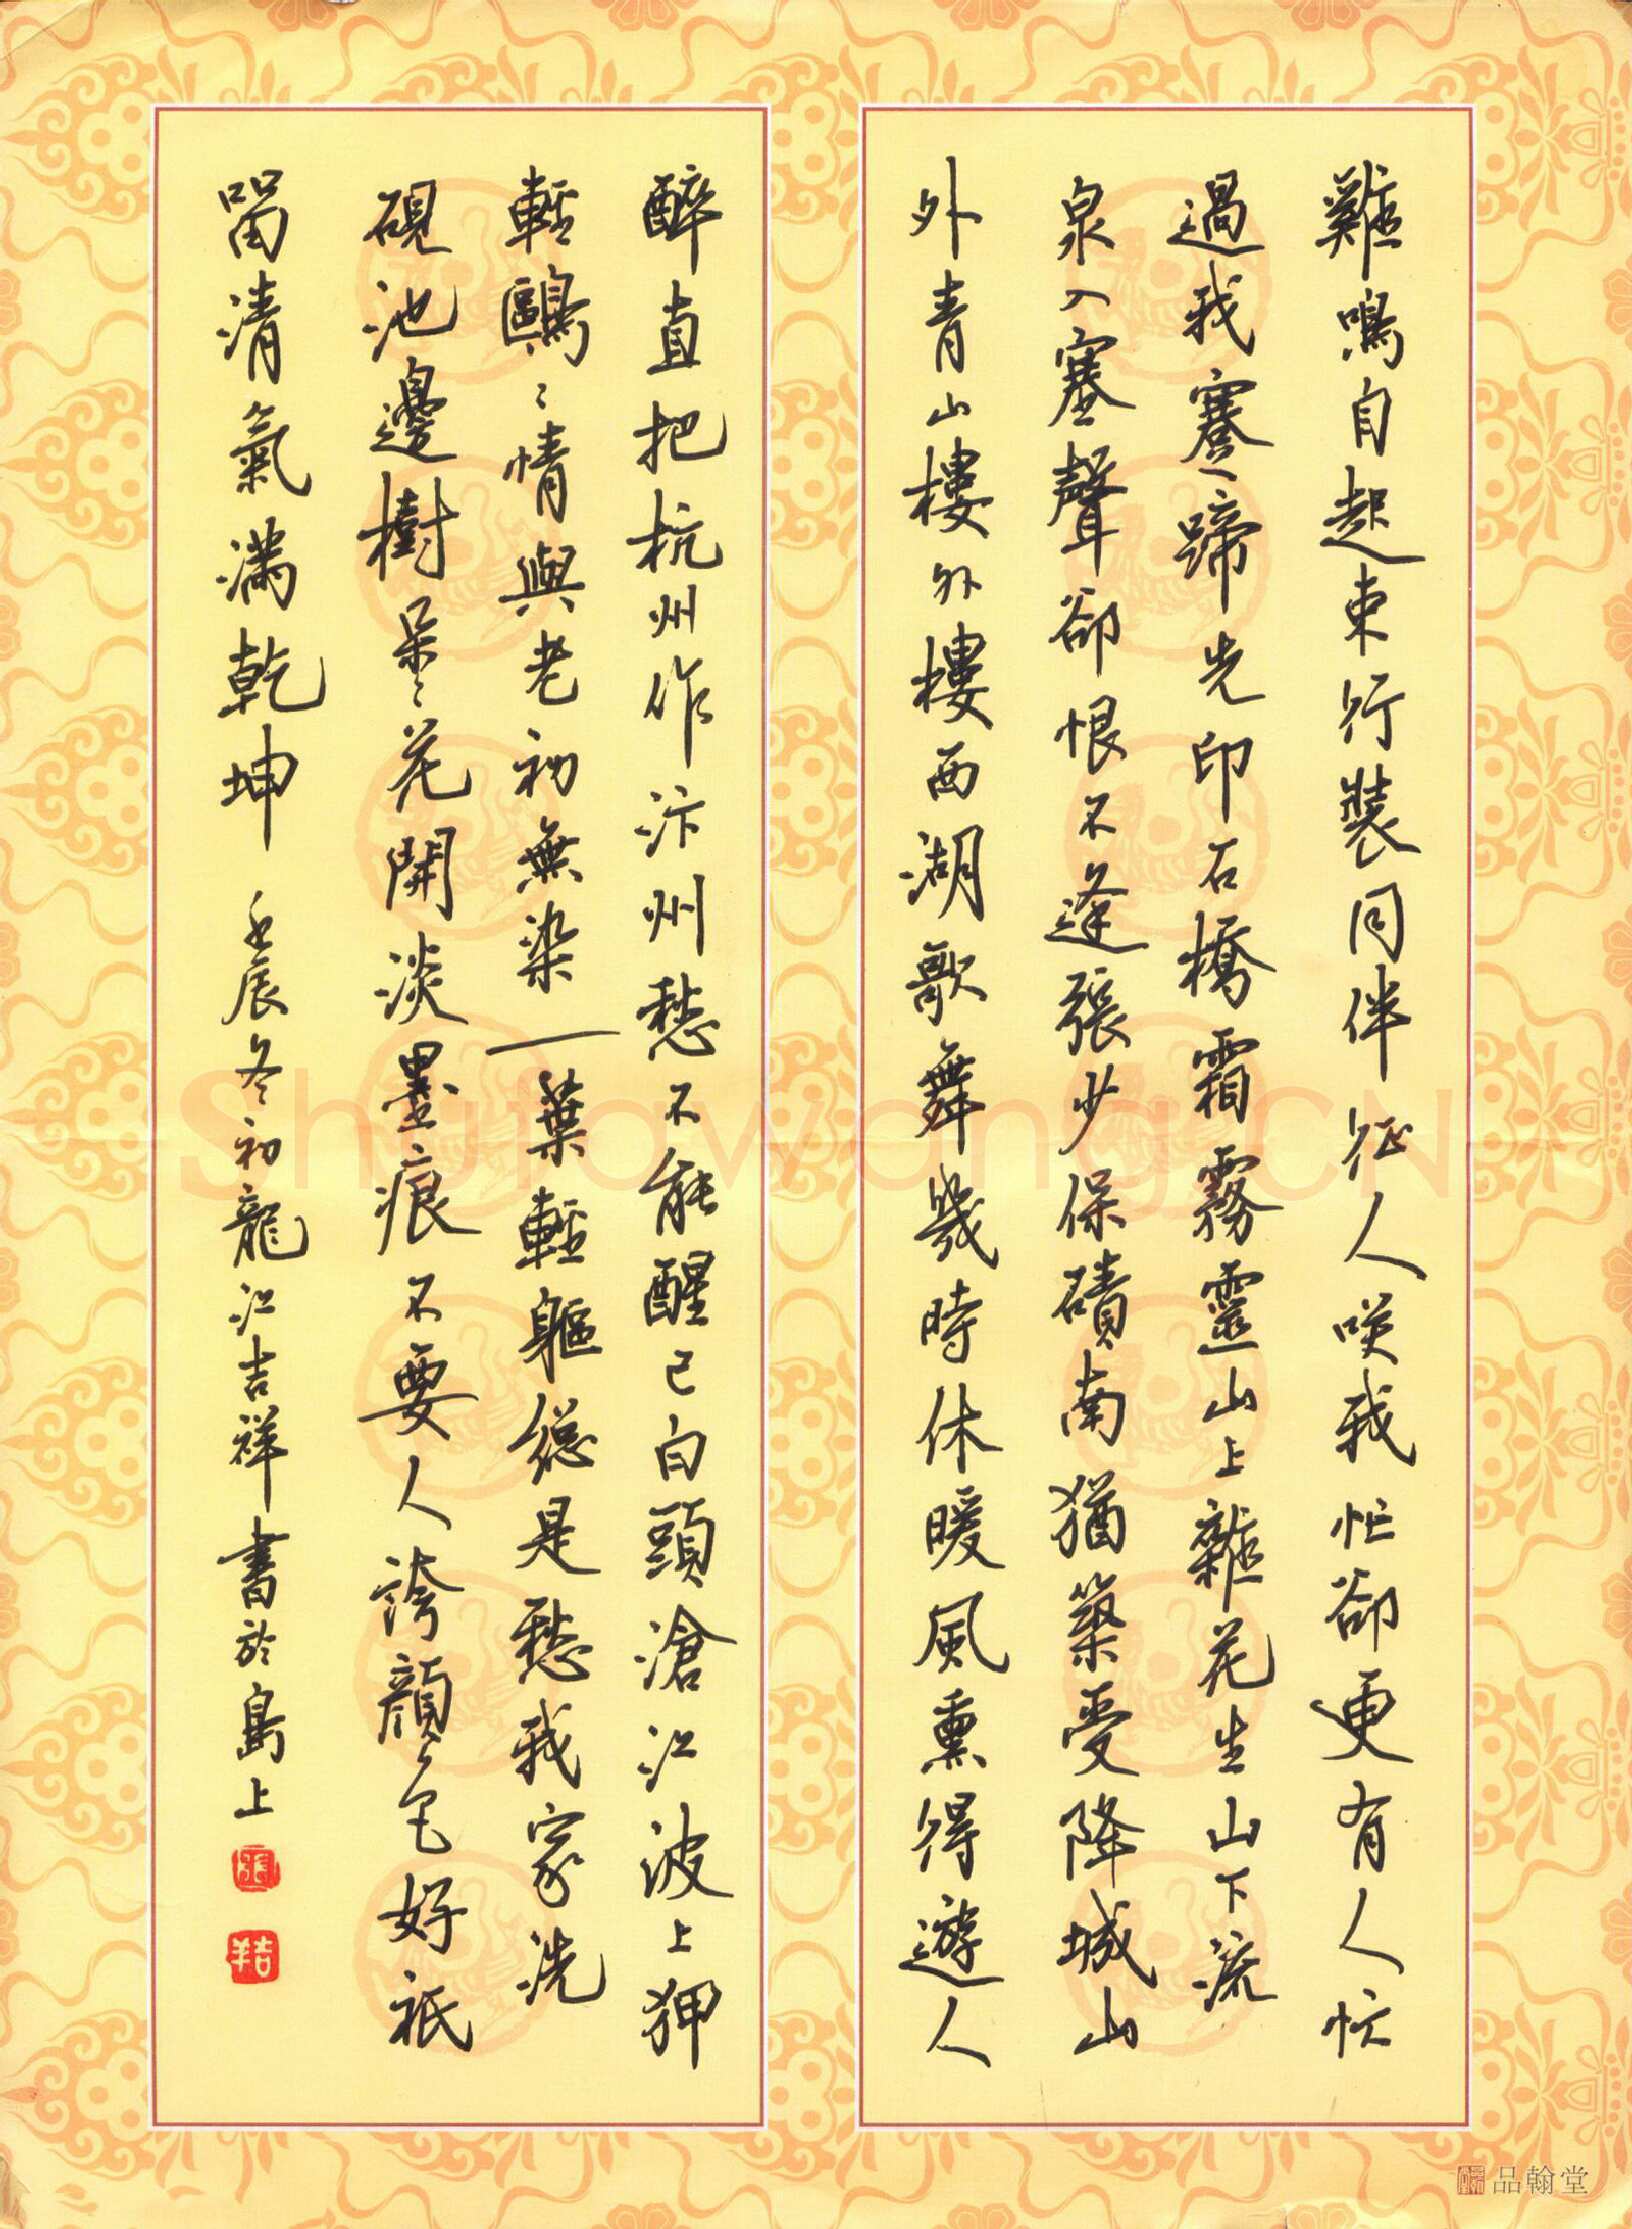 雞鳴自起束行裝同伴征人咲我忙卻更有人忙
過我蹇蹄先印石橋霜霧靈山上雜花生山下流
泉入塞聲卻恨不逢張少保磧南猶築受降城山
外青山樓外樓西湖歌舞幾時休暖風熏得遊人
醉直把杭州作汴州愁不能醒已白頭滄江波上狎
輕鷗鷗情與老初無染一葉輕軀總是愁我家洗
硯池邊樹朵朵花開淡墨痕不要人誇顏色好祇
留清氣滿乾坤 壬辰冬初龍江吉祥書於島上
Shufawang.CN
品翰堂